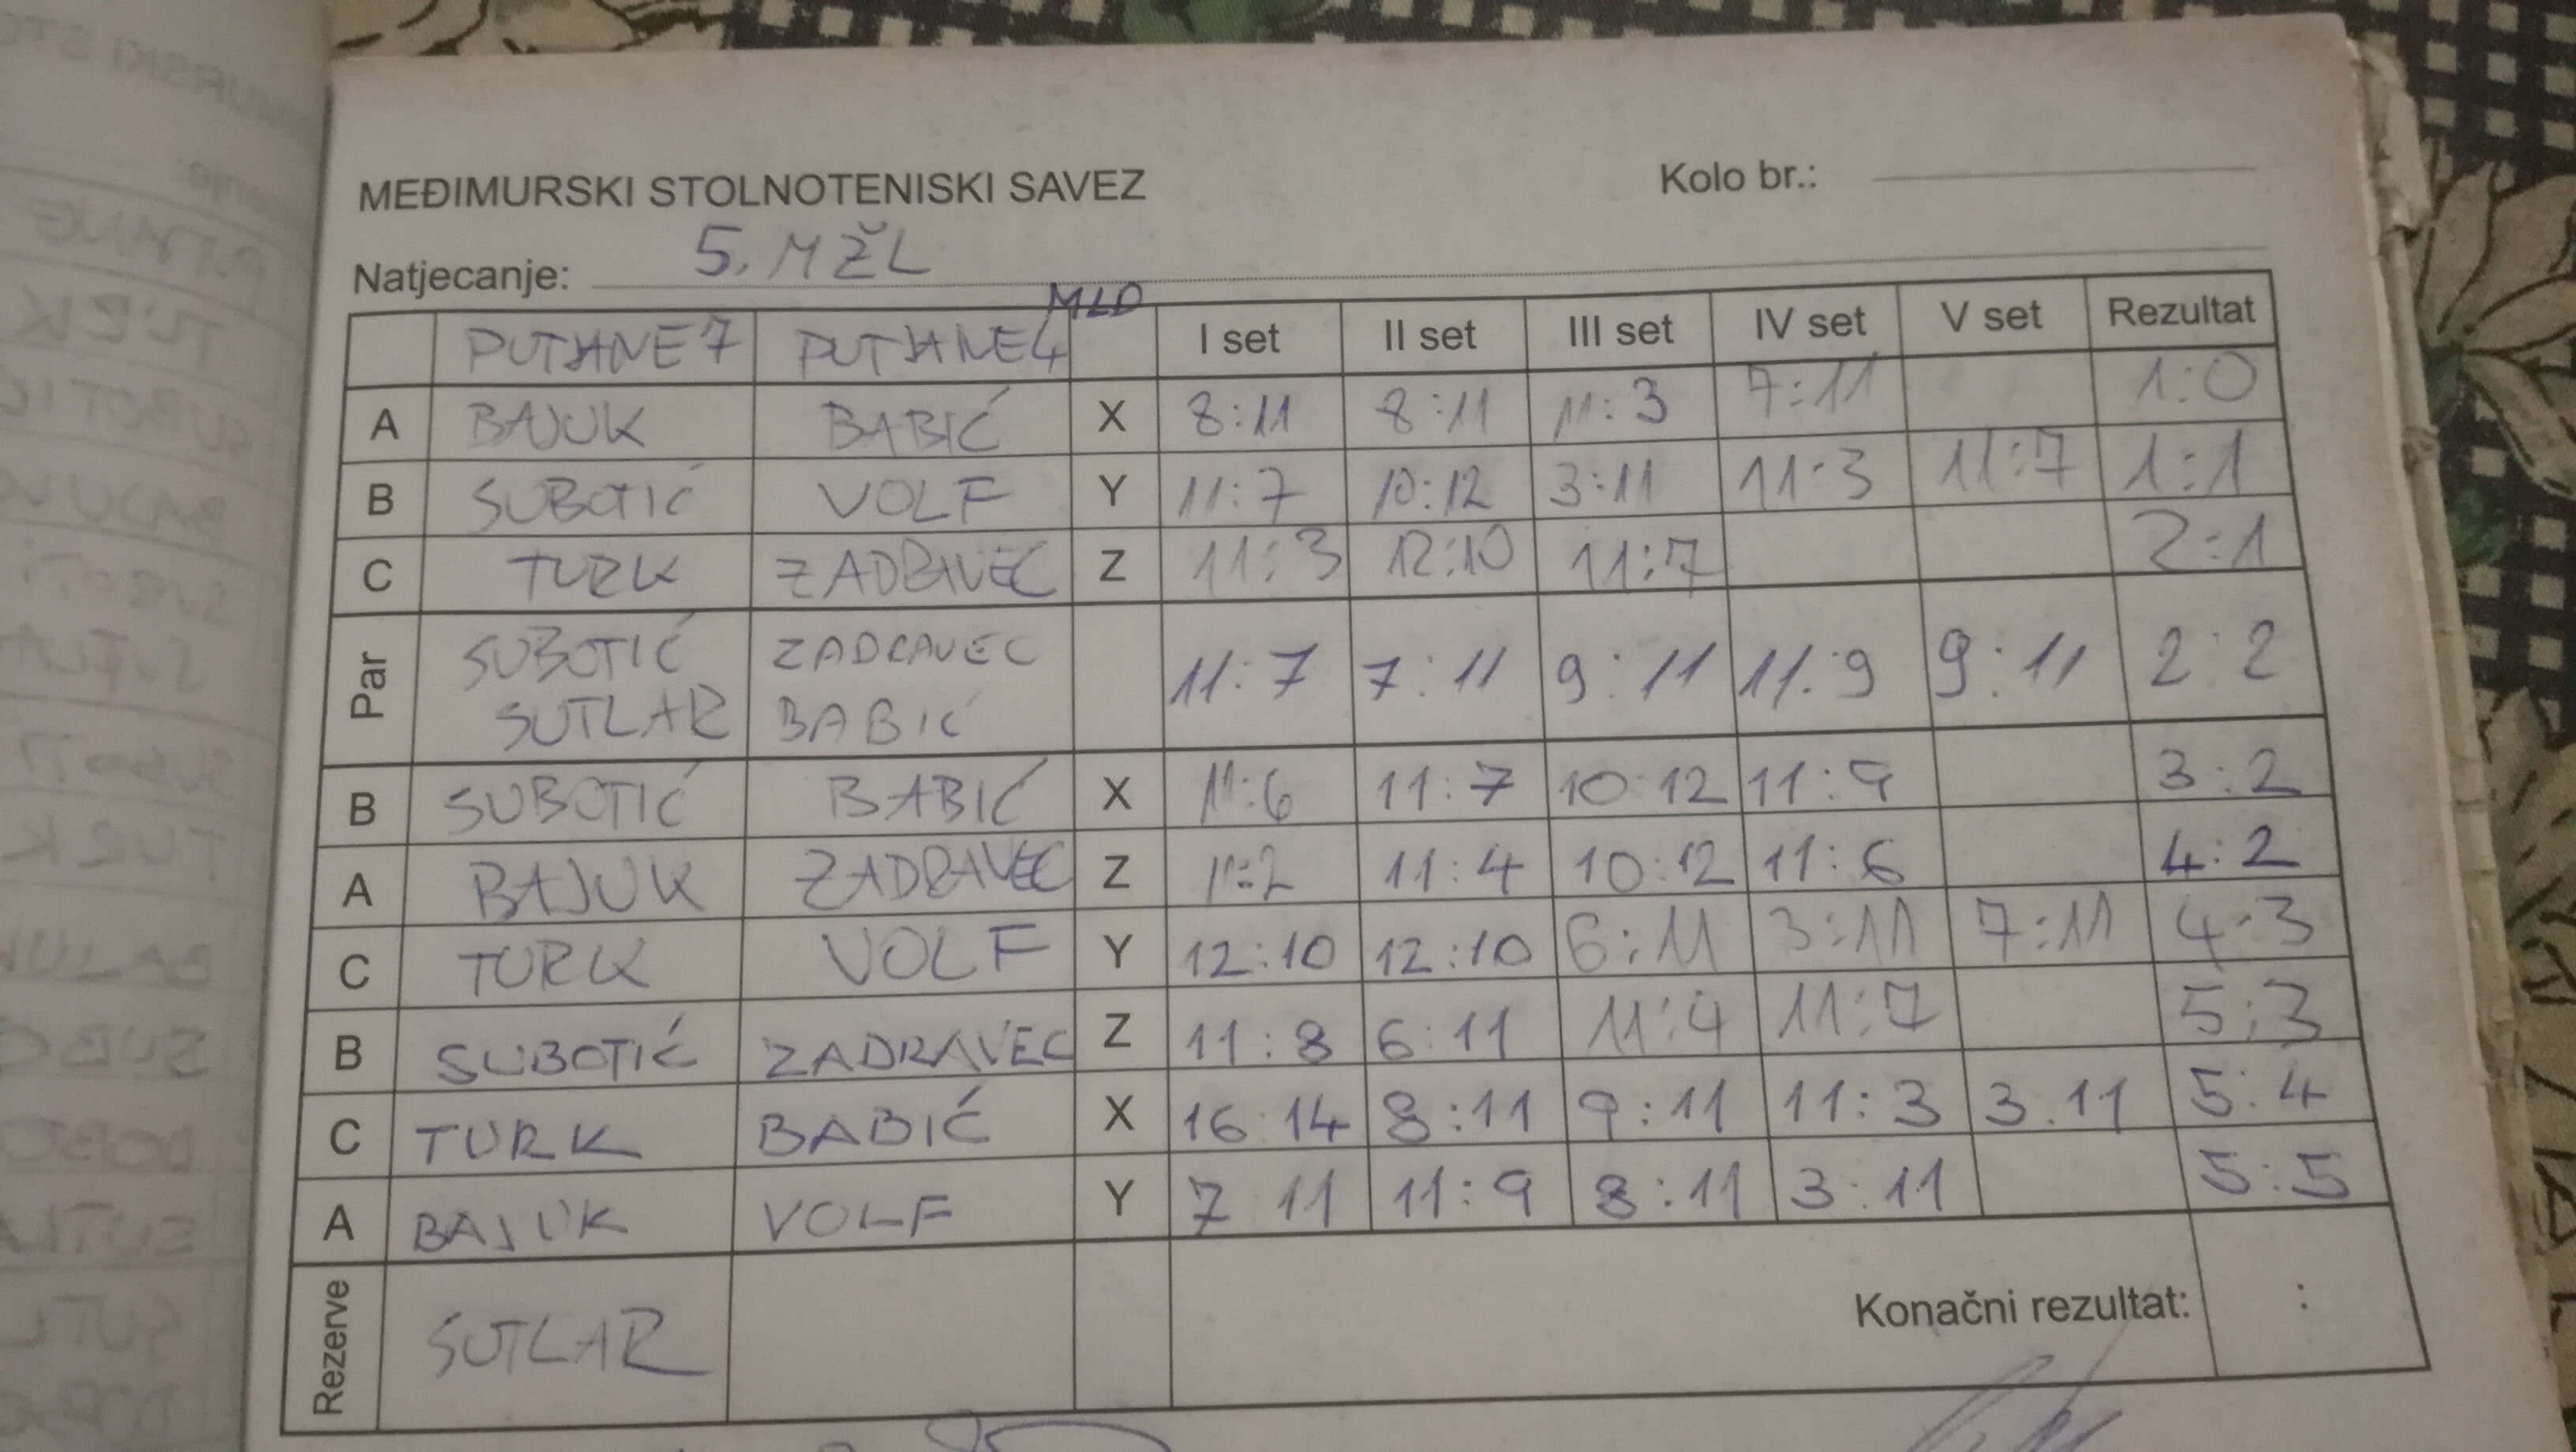 MEĐIMURSKI STOLNOTENISKI SAVEZ
Kolo br.:
Natjecanje: 5. MŽL
MLD
PUTJANE 7 PUTJANE 4 I set II set III set IV set V set Rezultat
A BAJUK BABIĆ X 8:11 8:11 11:3 7:11 1:0
B SUBOTIĆ VOLF Y 11:7 10:12 3:11 11:3 11:7 1:1
C TURK ZADRAVEC Z 11:3 12:10 11:7 2:1
Par SUBOTIĆ SUTLAR ZADRAVEC BABIĆ 11:7 7:11 9:11 11:9 9:11 2:2
B SUBOTIĆ BABIĆ X 11:6 11:7 10:12 11:9 3:2
A BAJUK ZADRAVEC Z 11:2 11:4 10:12 11:6 4:2
C TURK VOLF Y 12:10 12:10 6:11 3:11 7:11 4:3
B SUBOTIĆ ZADRAVEC Z 11:8 6:11 11:4 11:7 5:3
C TURK BABIĆ X 16 14 8:11 9:11 11:3 3.11 5:4
A BAJUK VOLF Y 7 11 11:9 8:11 3:11 5:5
Rezerve SUTLAR Konačni rezultat: :